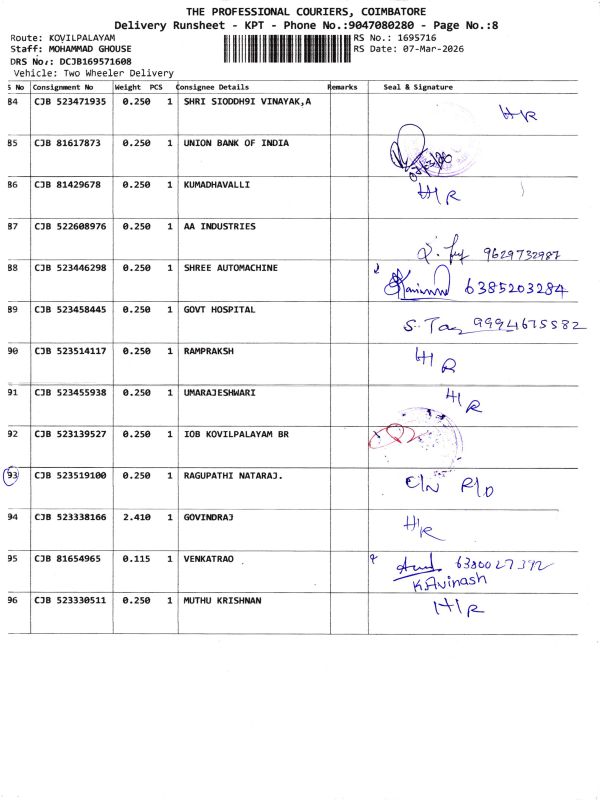 THE PROFESSIONAL COURIERS, COIMBATORE
Delivery Runsheet - KPT - Phone No.:9047080280 - Page No.:8
Route: KOVILPALAYAM RS No.: 1695716
Staff: MOHAMMAD GHOUSE RS Date: 07-Mar-2026
DRS No.: DCJB169571608
Vehicle: Two Wheeler Delivery
S No Consignment No Weight PCS Consignee Details Remarks Seal & Signature
84 CJB 523471935 0.250 1 SHRI SIODDH9I VINAYAK,A HR
85 CJB 81617873 0.250 1 UNION BANK OF INDIA
86 CJB 81429678 0.250 1 KUMADHAVALLI HIR
87 CJB 522608976 0.250 1 AA INDUSTRIES 9629732987
88 CJB 523446298 0.250 1 SHREE AUTOMACHINE 6385203284
89 CJB 523458445 0.250 1 GOVT HOSPITAL 9994675582
90 CJB 523514117 0.250 1 RAMPRAKSH HIR
91 CJB 523455938 0.250 1 UMARAJESHWARI HIR
92 CJB 523139527 0.250 1 IOB KOVILPALAYAM BR
93 CJB 523519100 0.250 1 RAGUPATHI NATARAJ. C/N R/D
94 CJB 523338166 2.410 1 GOVINDRAJ HIR
95 CJB 81654965 0.115 1 VENKATRAO 6380027392
K.Avinash
96 CJB 523330511 0.250 1 MUTHU KRISHNAN HIR